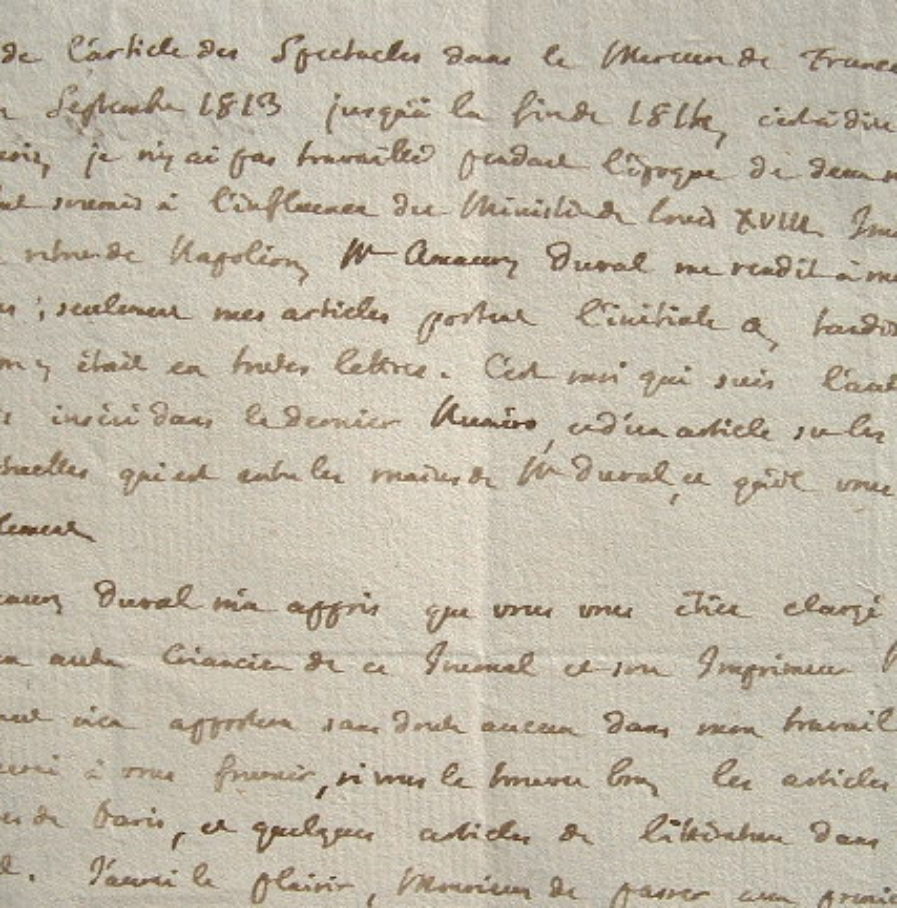 de l'article des Spectacles dans le Mercure de France
Septembre 1813 jusqu'à la fin de 1814, c'est à dire
je n'y ai pas travaillé pendant l'époque de deux
soumis à l'influence du Ministère de Louis XVIII.
de Napoléon, Mr Amaury Duval me rendit à me
; seulement mes articles portent l'initiale a, tandis
était en toutes lettres. C'est moi qui suis l'aut
inséré dans le dernier Numéro, et d'un article sur les
qui est entre les mains de Mr Duval, et qu'il vous
Duval m'a appris que vous vous étiez chargé
autre Créancier de ce Journal et son Imprimeur
apportera sans doute aucun dans mon travail
à vous fournir, si vous le trouvez bon, les articles
de Paris, et quelques articles de littérature dans
J'aurai le plaisir, Monsieur de passer un